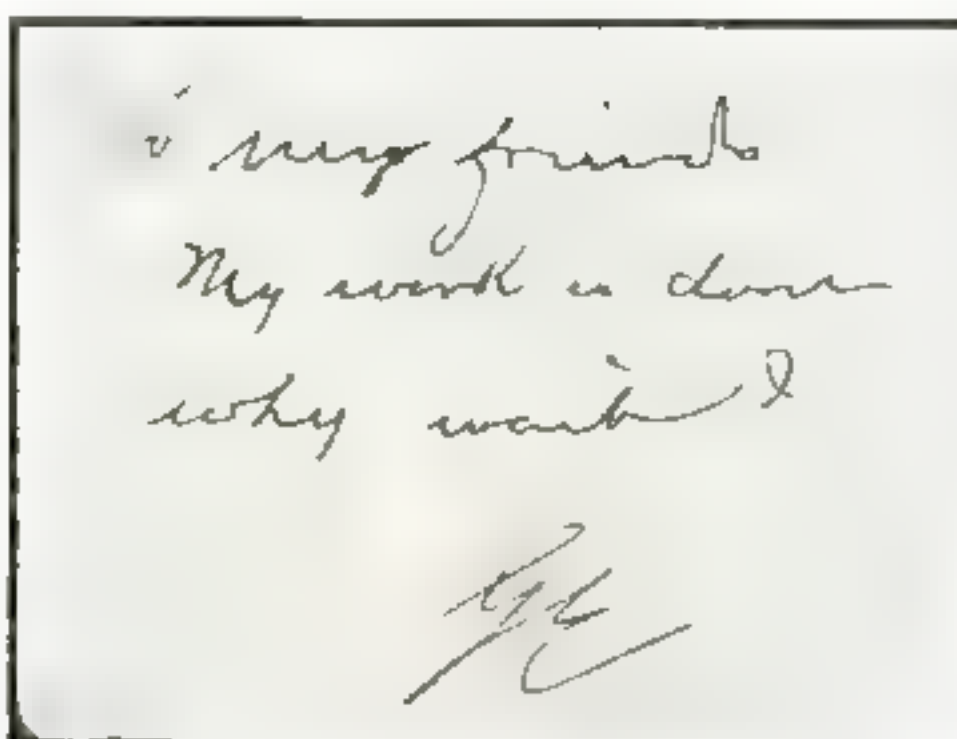 my friends
My work is done
why wait?
GE